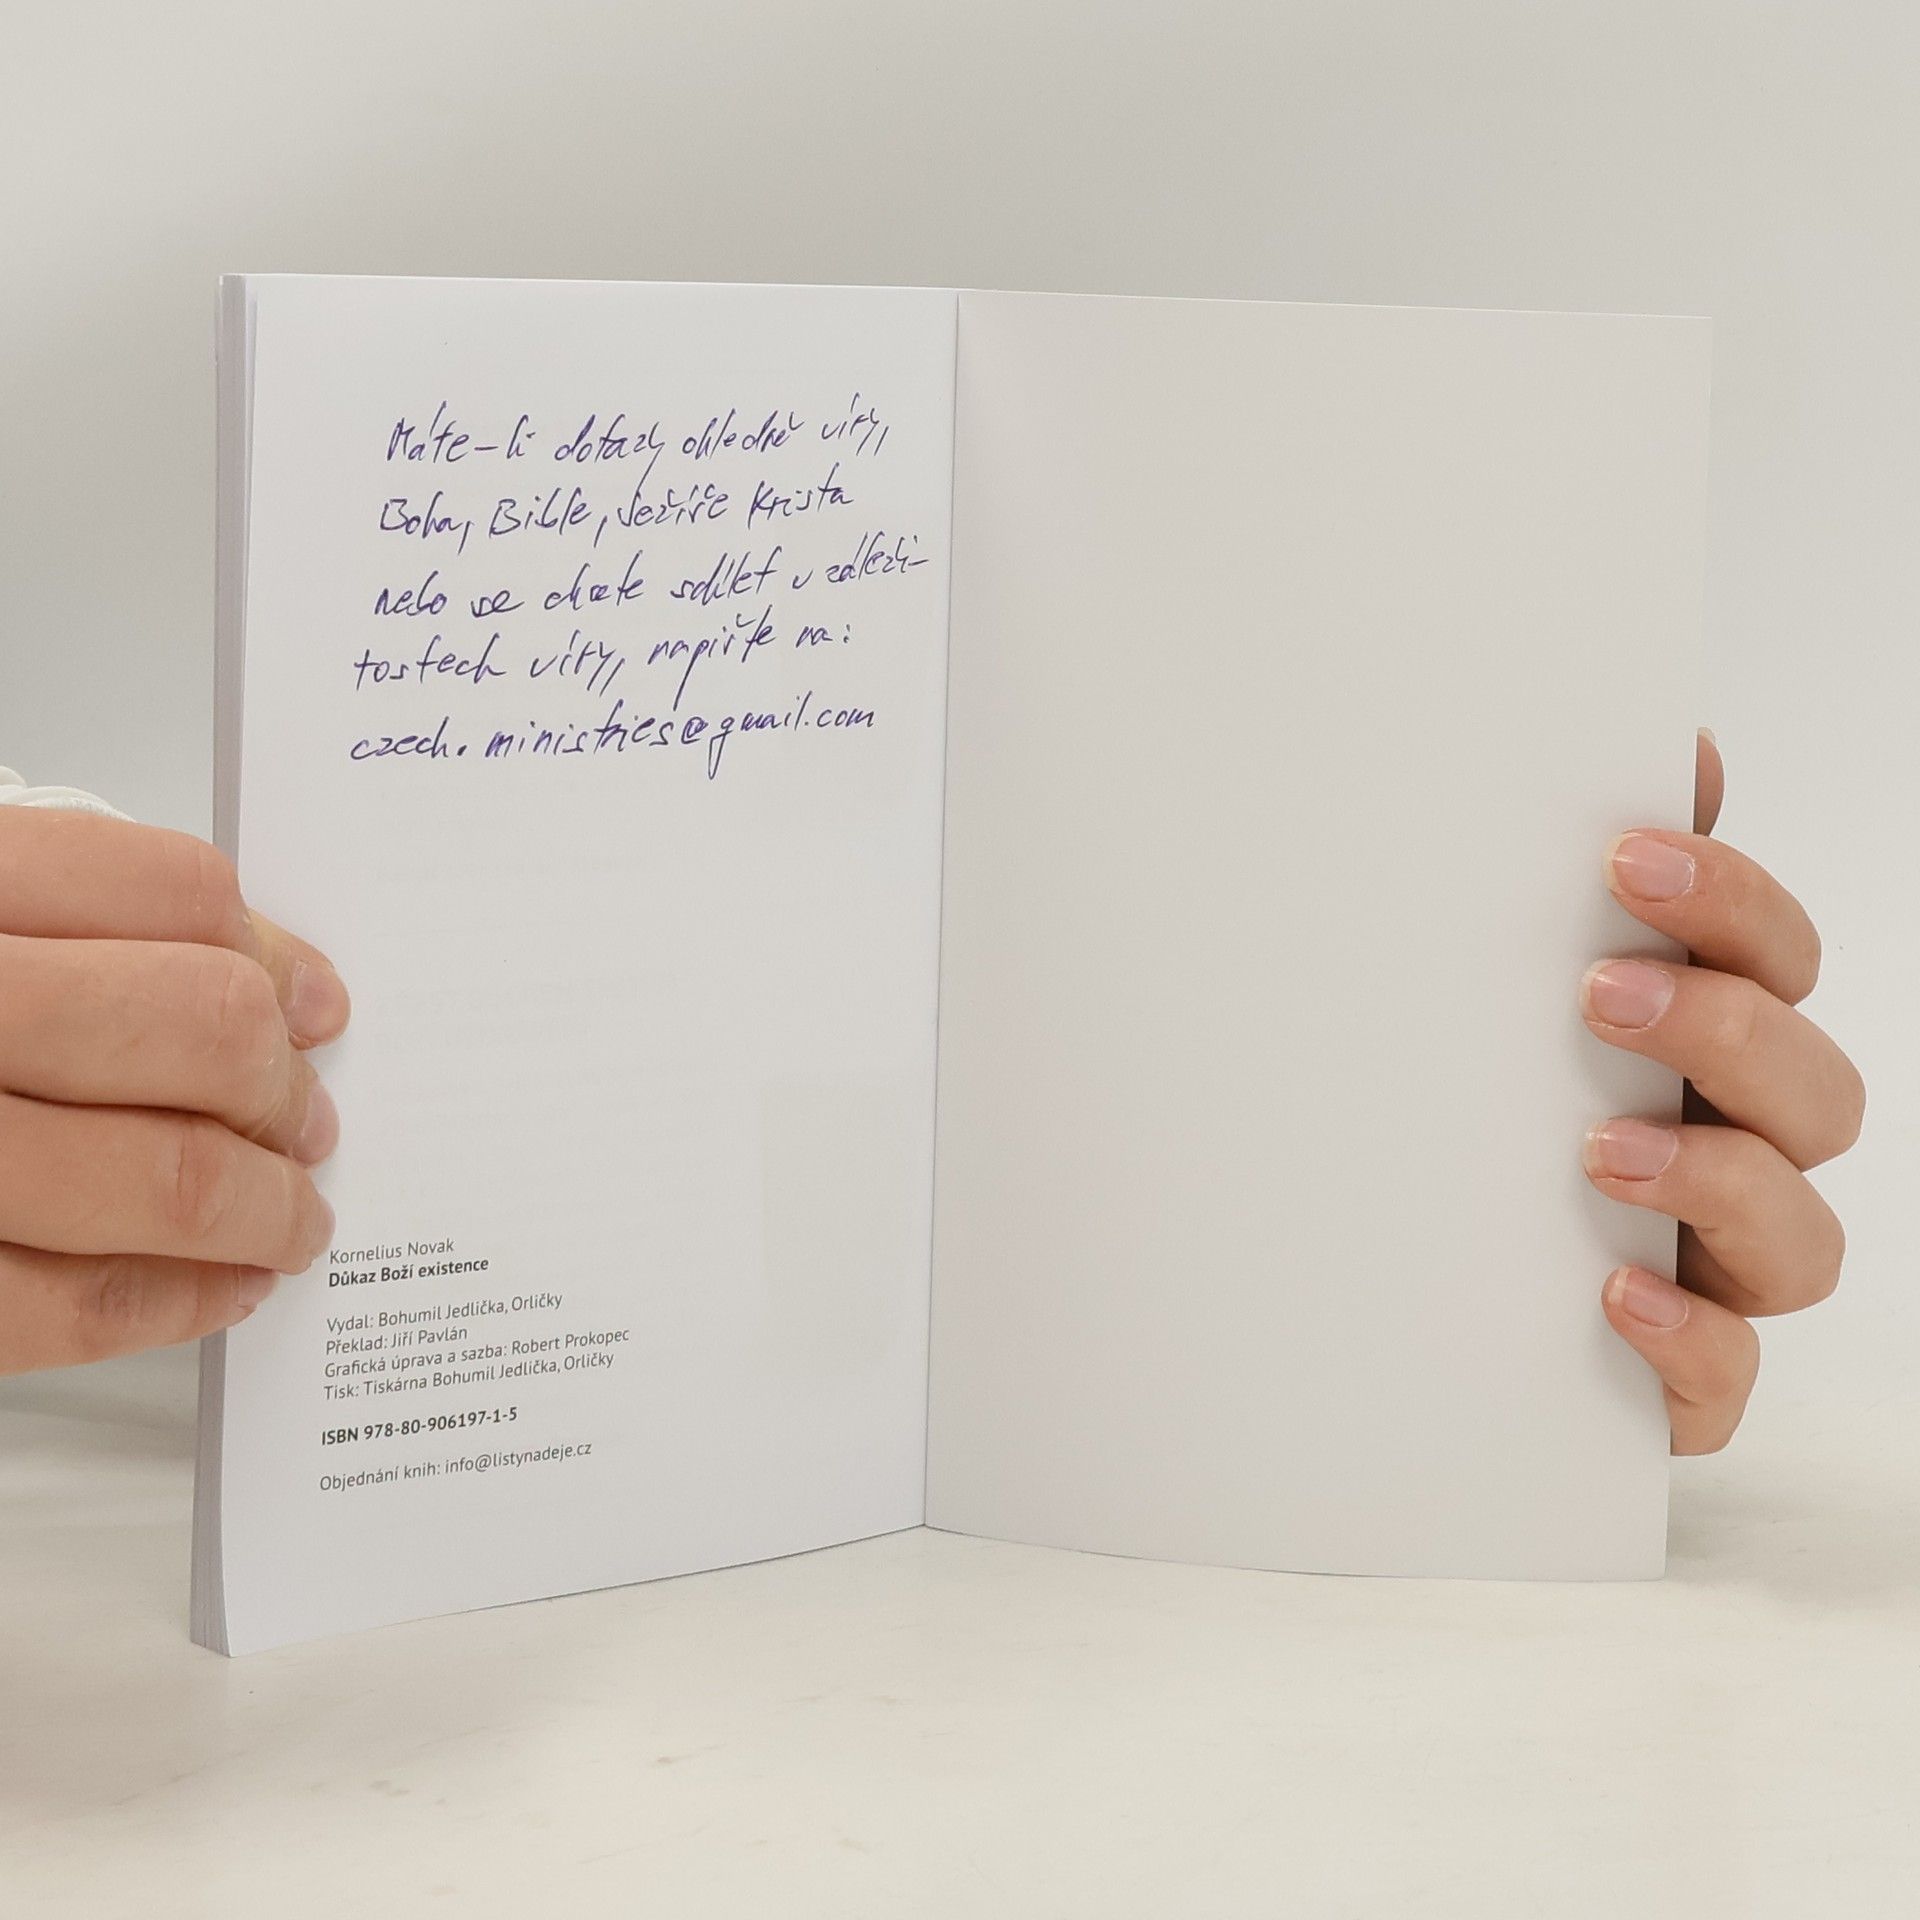 Máte-li dotazy ohledně víry,
Boha, Bible, Ježíše Krista
nebo se chcete sdílet v záleži-
tostech víry, napište na:
czech.ministries@gmail.com
Kornelius Novak
Důkaz Boží existence
Vydal: Bohumil Jedlička, Orličky
Překlad: Jiří Pavlán
Grafická úprava a sazba: Robert Prokopec
Tisk: Tiskárna Bohumil Jedlička, Orličky
ISBN 978-80-906197-1-5
Objednání knih: info@listynadeje.cz